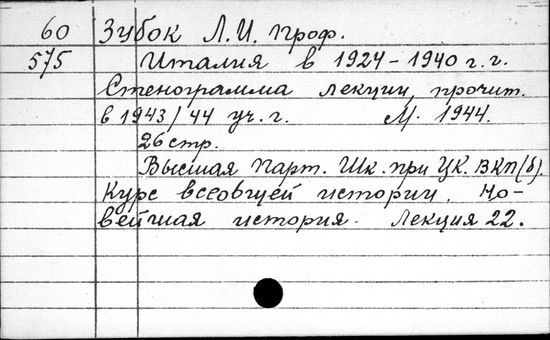 60 Зубок Л.И. проф.
575 Италия в 1924-1940 г.г.
Стенограмма лекции, прочит.
в 1943/44 уч. г. М. 1944.
26 стр.
Высшая Парт. Шк. при ЦК. ВКП(б).
Курс всеобщей истории. Но-
вейшая история. Лекция 22.